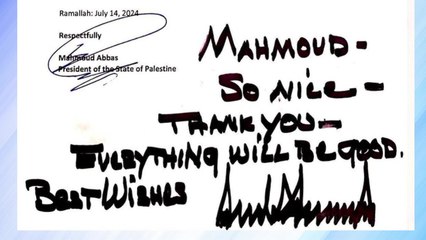 Ramallah: July 14, 2024
Respectfully
Mahmoud Abbas
President of the State of Palestine
MAHMOUD-
SO NICE-
THANK YOU-
EVERYTHING WILL BE GOOD.
BEST WISHES